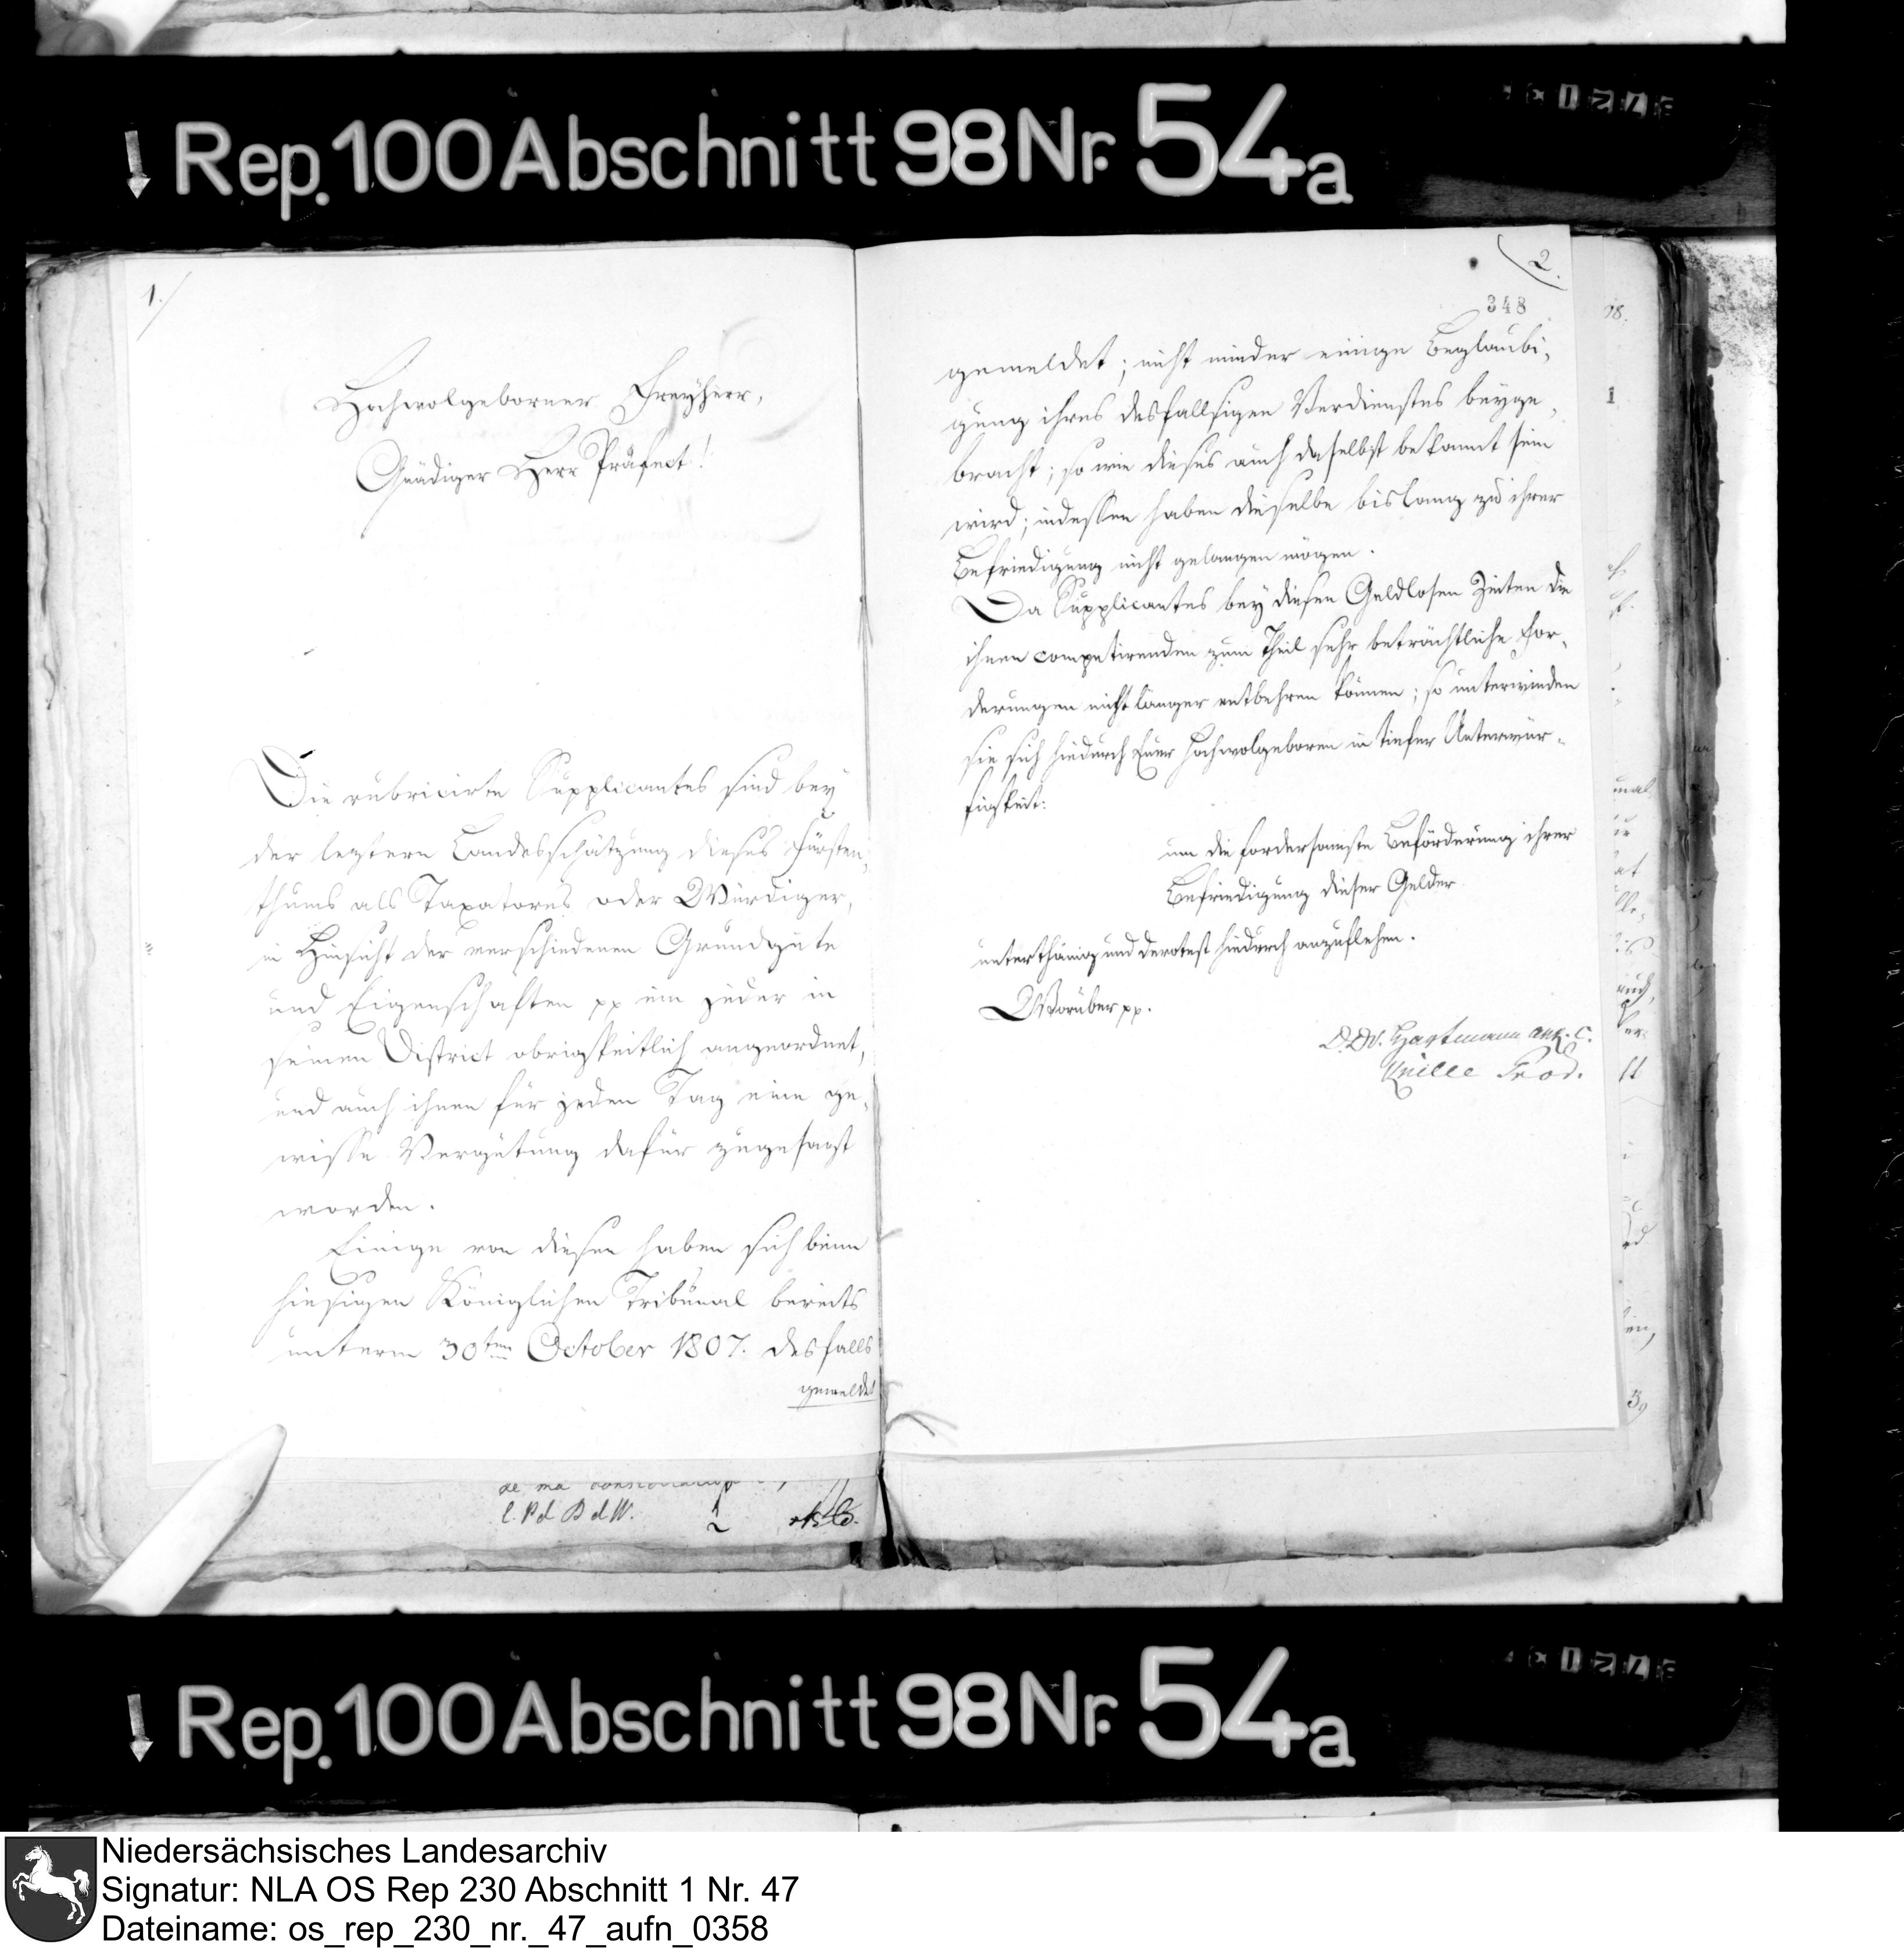 Rep. 100 Abschnitt 98 Nr. 54a
1.
Hochwolgeborner Freyherr,
Gnädiger Herr Präfect!
Die rubricirte Supplicantes sind bey
der leztern Landesschätzung dieses Fürsten,
thums als Taxatores oder Würdiger,
in Hinsicht der verschiedenen Grundgüte
und Eigenschaften pp ein jeder in
seinen District obrigkeitlich angeordnet,
und auch ihnen für jeden Tag eine ge,
wisse Vergütung dafür zugesagt
worden.
Einige von diesen haben sich beim
hiesigen Königlichen Tribunal bereits
unterm 30ten October 1807. desfalls
gemeldet
de ma
l. P d D d W.
2.
348
gemeldet; nicht minder einige Beglaubi,
gung ihres desfallsigen Verdienstes beyge,
bracht; so wie dieses auch daselbst bekannt sein
wird; indessen haben dieselbe bislang zu ihrer
Befriedigung nicht gelangen mögen.
Da Supplicantes bey diesen Geldlosen Zeiten die
ihnen competirenden zum Theil sehr beträchtliche For,
derungen nicht länger entbehren können; so unterwinden
sie sich hiedurch Euer Hochwolgeboren in tiefer Unterwür-
figkeit:
um die fordersamste Beförderung ihrer
Befriedigung dieser Gelder
unterthänig und devotest hiedurch anzuflehen.
Worüber pp.
Hartmann
Prod.
Rep. 100 Abschnitt 98 Nr. 54a
Niedersächsisches Landesarchiv
Signatur: NLA OS Rep 230 Abschnitt 1 Nr. 47
Dateiname: os_rep_230_nr._47_aufn_0358